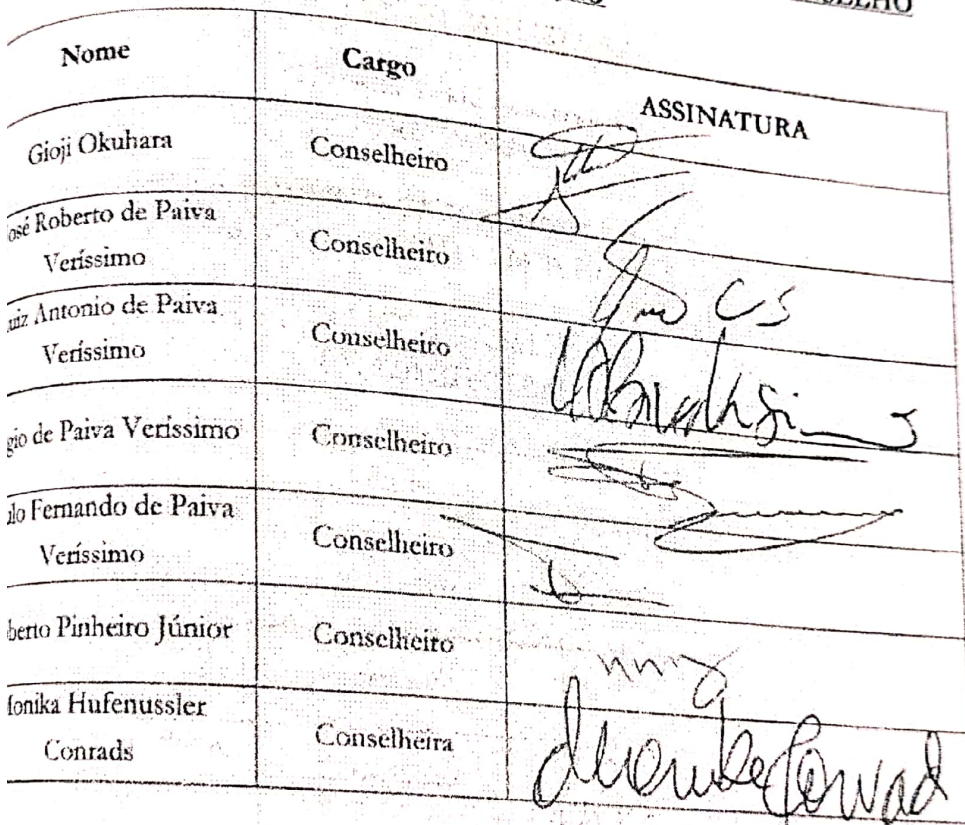 Nome Cargo ASSINATURA
Gioji Okuhara Conselheiro
osé Roberto de Paiva
Veríssimo Conselheiro
uiz Antonio de Paiva
Veríssimo Conselheiro
gio de Paiva Veríssimo Conselheiro
lo Fernando de Paiva
Veríssimo Conselheiro
berto Pinheiro Júnior Conselheiro
onika Hufenussler
Conrads Conselheira